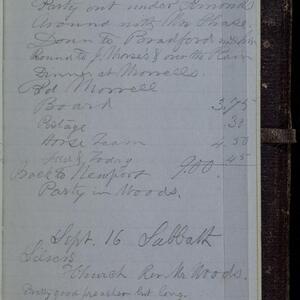 Party out under Almonds
Around with Mr
Down to Bradford
Round to J. Morse's & over the Plain
Dinner at Morrells.
Pd Morrell
Board 3.75
Postage .30
Horse Team 4.50
& Today .45
Back to Newport 9.00
Party in Woods.
Sept. 16 Sabbath
Church Rev. Mr. Woods.
Pretty good preacher but long.